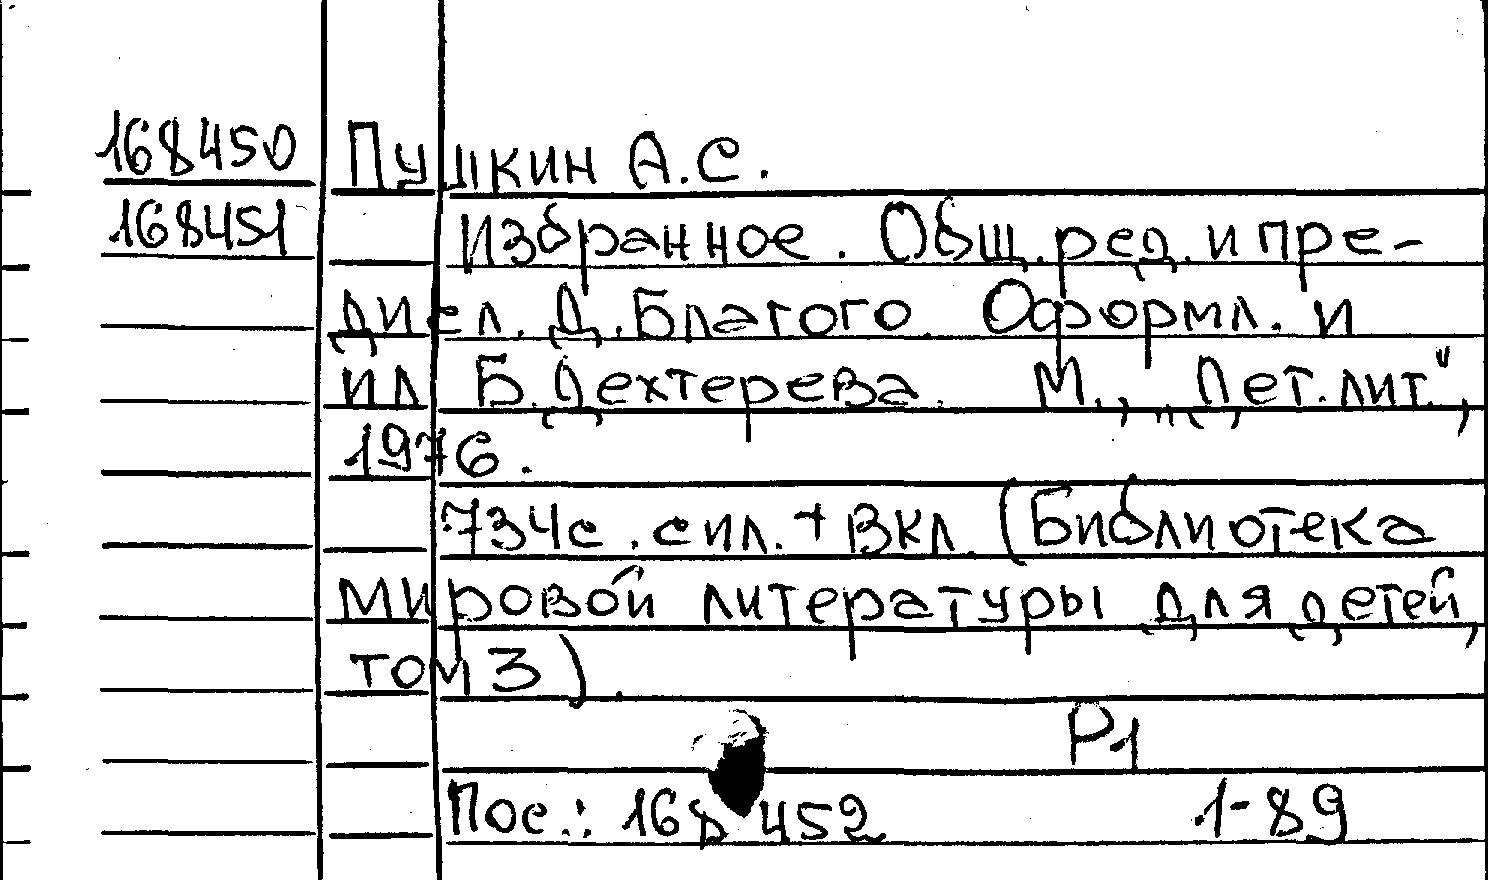 168450 Пушкин А.С.
168451 Избранное. Общ. ред. и пре-
дисл. Д. Благого. Оформл. и
ил. Б. Дехтерева. М., "Дет. лит.",
1976.
734с. с ил. + вкл. (Библиотека
мировой литературы для детей,
том 3).
Р1
Пос.: 168452 1-89